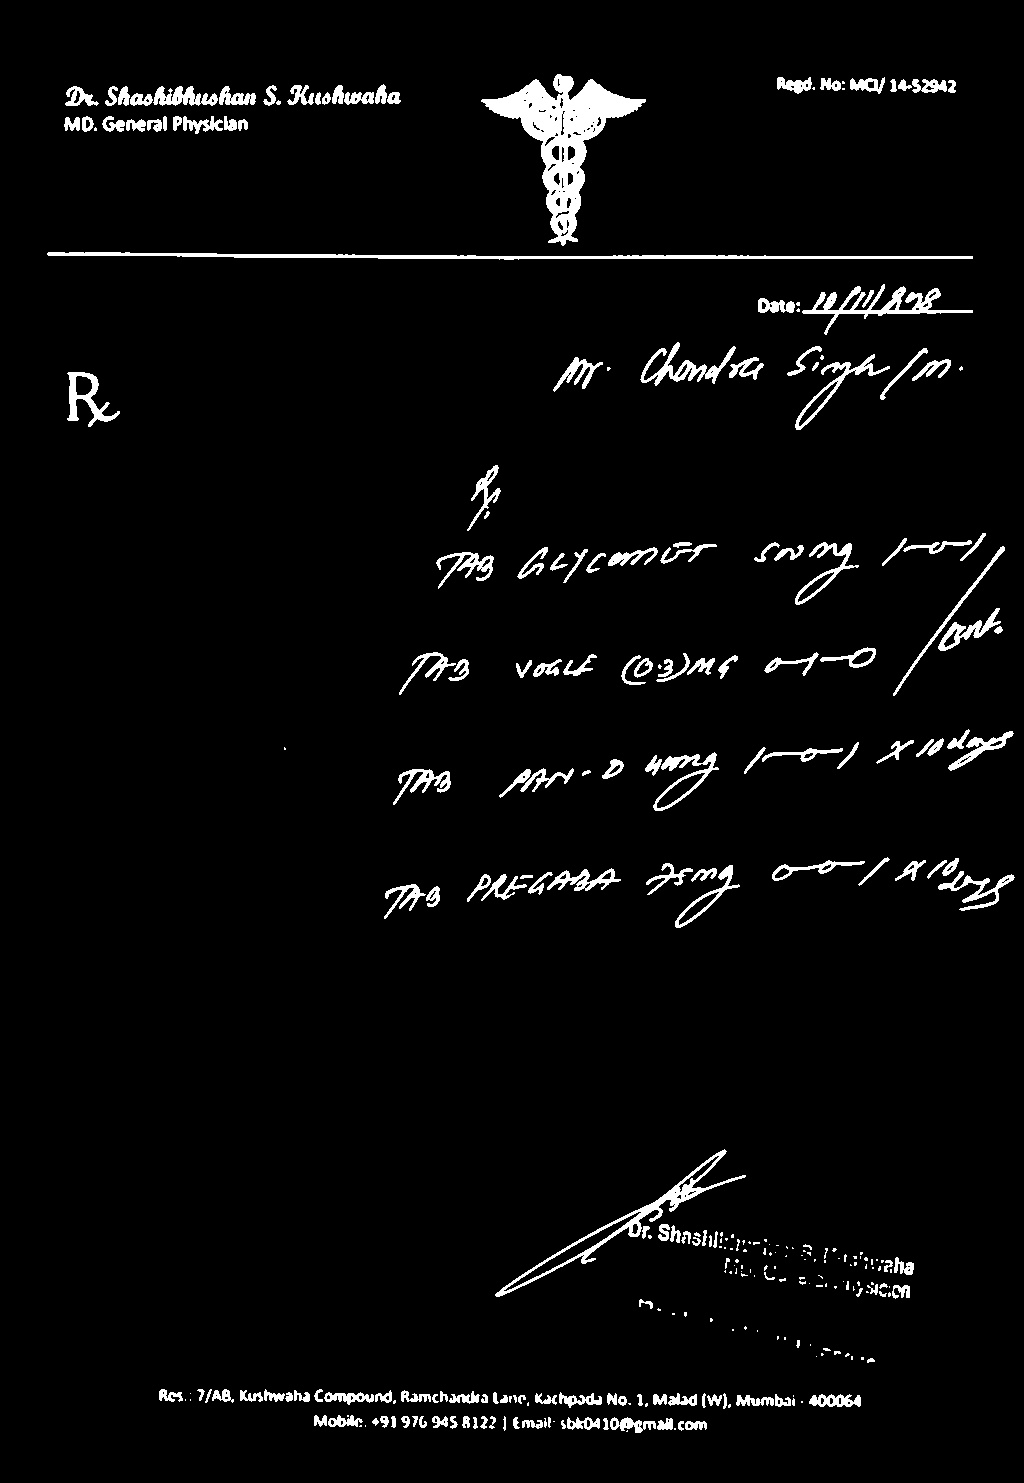 Dr. Shashibhushan S. Kushwaha
MD. General Physician
Regd. No: MCI/ 14-52942
Date: 10/11/
Mr. Chandra Singh / m.
Rx
Rx
TAB GLYCOMET 500mg 1-0-1
TAB VOGLE (0.3)MG 0-1-0 / cont.
TAB PAN-D 40mg 1-0-1 X 10 days
TAB PREGABA 75mg 0-0-1 X 10 days
Dr. Shashibhushan S. Kushwaha
MD. General Physician
Res.: 7/AB, Kushwaha Compound, Ramchandra Lane, Kachpada No. 1, Malad (W), Mumbai - 400064
Mobile: +91 976 945 8122 | Email: sbk0410@gmail.com